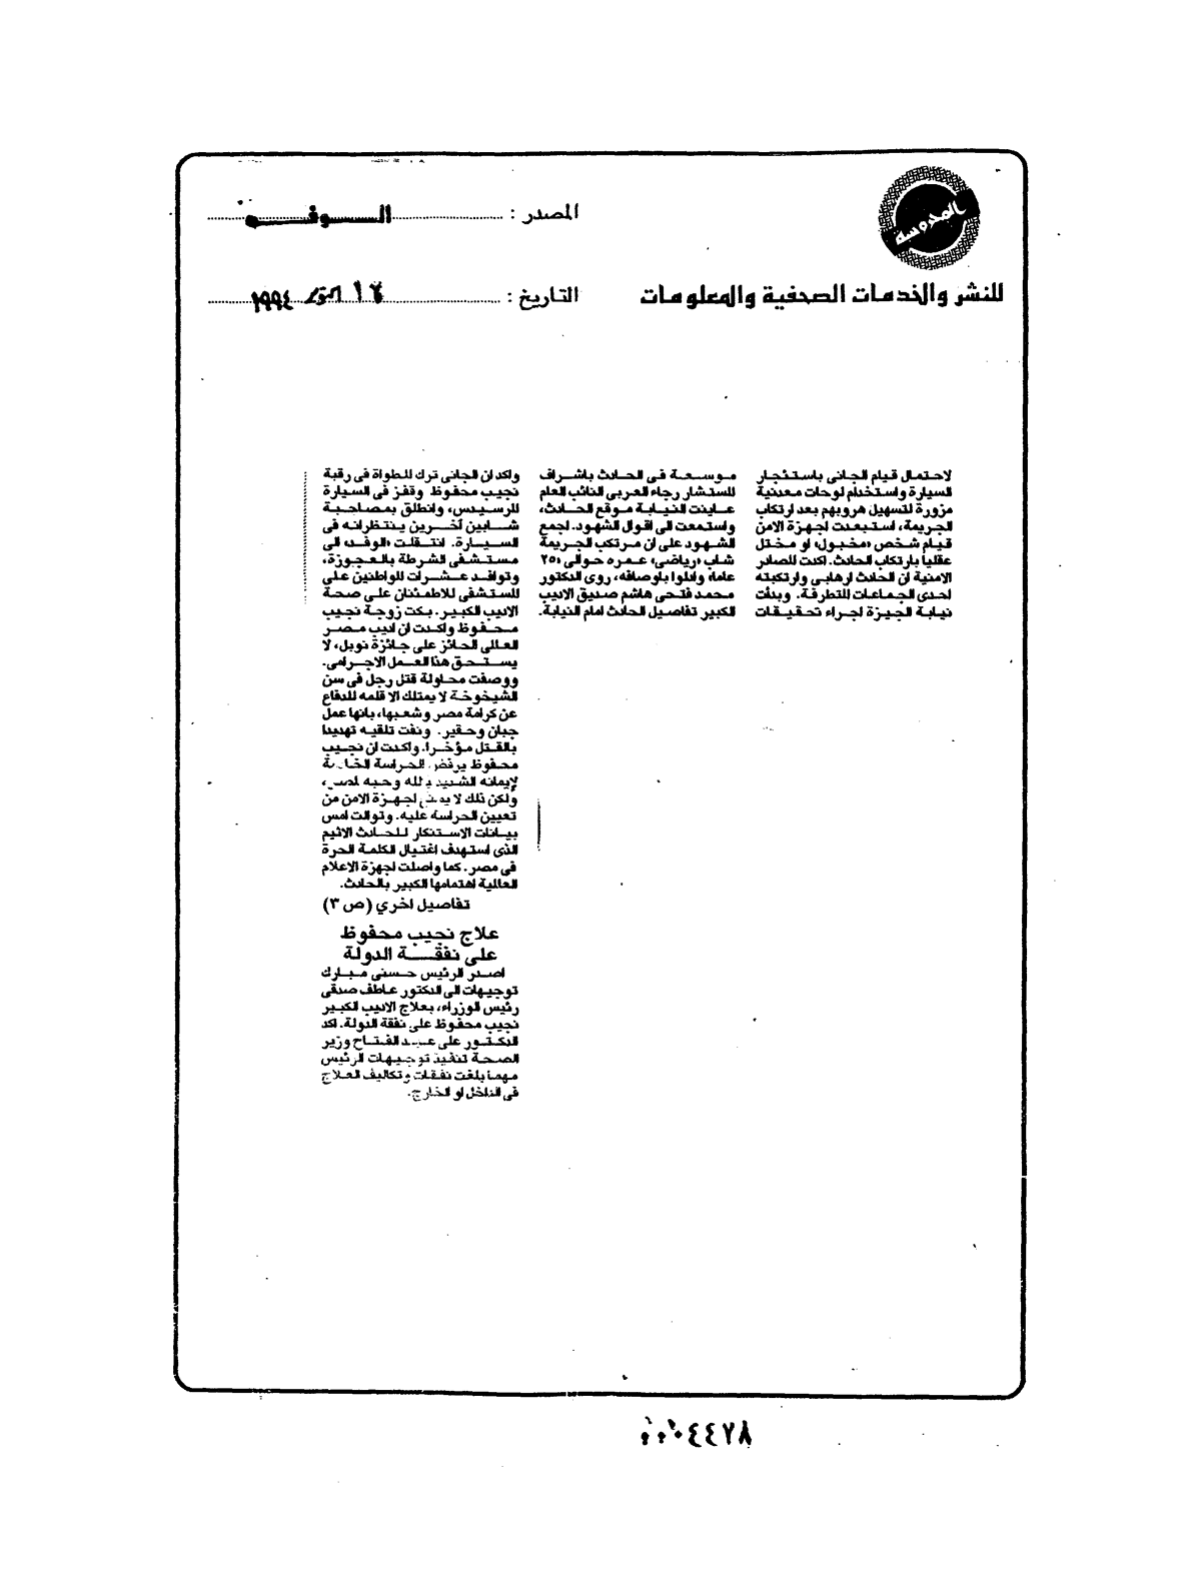 المدوسة
المصدر : الوفد
للنشر والخدمات الصحفية والمعلومات
التاريخ : ١٦ اكتوبر ١٩٩٤
لاحتمال قيام الجانى باستئجار
السيارة واستخدام لوحات معدنية
مزورة لتسهيل هروبهم بعد ارتكاب
الجريمة، استبعدت اجهزة الامن
قيام شخص «مخبول» او مختل
عقليا بارتكاب الحادث. اكدت المصادر
الامنية ان الحادث ارهابى وارتكبته
احدى الجماعات المتطرفة. وبدأت
نيابة الجيزة اجراء تحقيقات
موسعة فى الحادث باشراف
المستشار رجاء العربى النائب العام
عاينت النيابة موقع الحادث،
واستمعت الى اقوال الشهود. اجمع
الشهود على ان مرتكب الجريمة
شاب «رياضى» عمره حوالى «٢٥
عاما» وادلوا باوصافه، روى الدكتور
محمد فتحى هاشم صديق الاديب
الكبير تفاصيل الحادث امام النيابة.
واكد ان الجانى ترك المطواة فى رقبة
نجيب محفوظ وقفز فى السيارة
المرسيدس، وانطلق بمصاحبة
شابين آخرين ينتظرانه فى
السيارة. انتقلت «الوفد» الى
مستشفى الشرطة بالعجوزة،
وتوافد عشرات المواطنين على
المستشفى للاطمئنان على صحة
الاديب الكبير. بكت زوجة نجيب
محفوظ واكدت ان اديب مصر
العالمى الحائز على جائزة نوبل، لا
يستحق هذا العمل الاجرامى.
ووصفت محاولة قتل رجل فى سن
الشيخوخة لا يمتلك الا قلمه للدفاع
عن كرامة مصر وشعبها، بانها عمل
جبان وحقير. ونفت تلقيه تهديدا
بالقتل مؤخرا. واكدت ان نجيب
محفوظ يرفض الحراسة الخاصة
لإيمانه الشديد بالله وحبه لمصر،
ولكن ذلك لا يمنع اجهزة الامن من
تعيين الحراسة عليه. وتوالت امس
بيانات الاستنكار للحادث الاثيم
الذى استهدف اغتيال الكلمة الحرة
فى مصر. كما واصلت اجهزة الاعلام
العالمية اهتمامها الكبير بالحادث.
تفاصيل اخري (ص ٣)
علاج نجيب محفوظ
على نفقة الدولة
اصدر الرئيس حسنى مبارك
توجيهات الى الدكتور عاطف صدقى
رئيس الوزراء، بعلاج الاديب الكبير
نجيب محفوظ على نفقة الدولة. اكد
الدكتور على عبد الفتاح وزير
الصحة تنفيذ توجيهات الرئيس
مهما بلغت نفقات وتكاليف العلاج
فى الداخل او الخارج.
٠٠٠٤٤٧٨